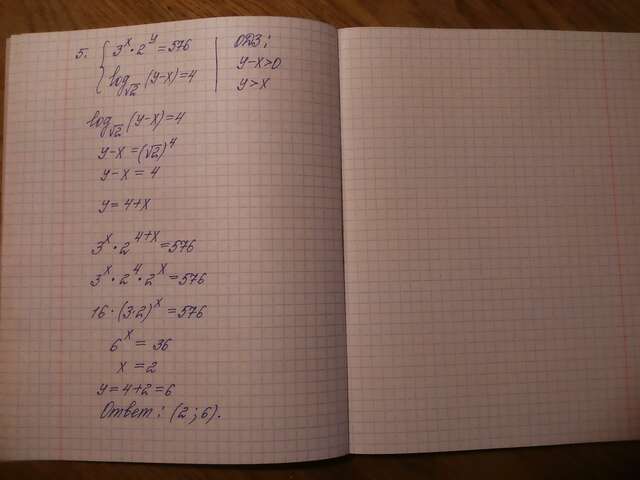 5. { 3^x · 2^y = 576
log_√2 (y-x) = 4
ОДЗ:
y-x>0
y>x
log_√2 (y-x) = 4
y-x = (√2)^4
y-x = 4
y = 4+x
3^x · 2^(4+x) = 576
3^x · 2^4 · 2^x = 576
16 · (3·2)^x = 576
6^x = 36
x = 2
y = 4+2 = 6
Ответ: (2; 6).